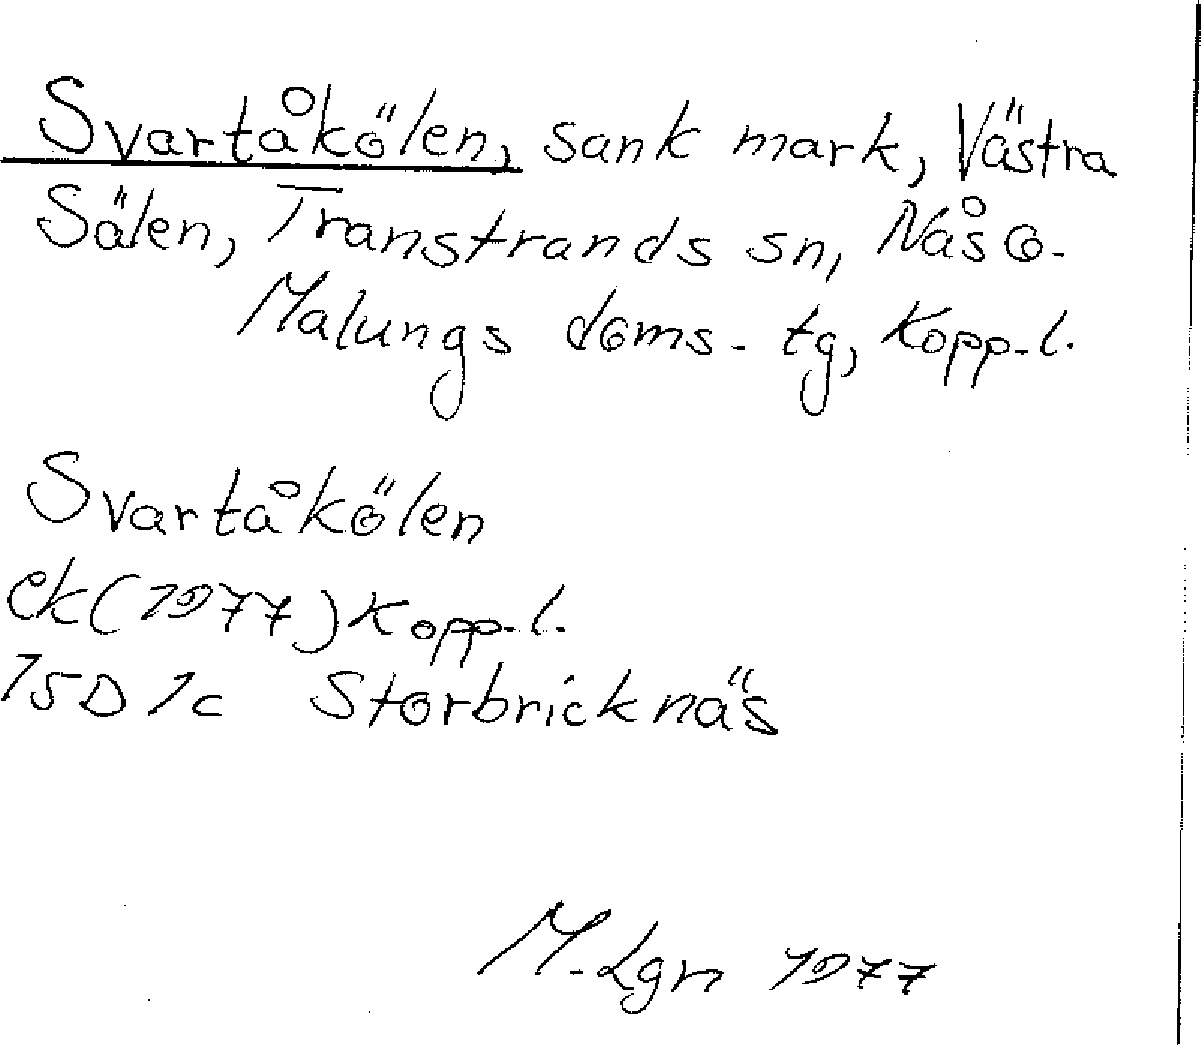 Svartåkölen, sank mark, Västra
Sälen, Transtrands sn, Nås o.
Malungs doms. tg, Kopp. l.
Svartåkölen
ek (1977) Kopp. l.
15D 1c Storbricknäs
M. Lgn 1977